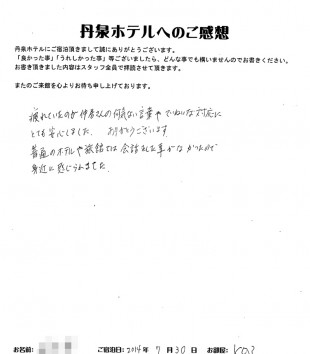 丹泉ホテルへのご感想
丹泉ホテルにご宿泊頂きまして誠にありがとうございます。
「良かった事」「うれしかった事」等ございましたら、どんな事でも構いませんのでお書きください。
お書き頂きました内容はスタッフ全員で拝読させて頂きます。
またのご来館を心よりお待ち申し上げております。
疲れていたので 伊春さんの何気ない言葉や ていねいな対応に
とても安心しました。 ありがとうございます。
普通のホテルや旅館では会話した事がなかったので
身近に感じられました。
お名前: ご宿泊日: 2014年 7月 30日 お部屋: